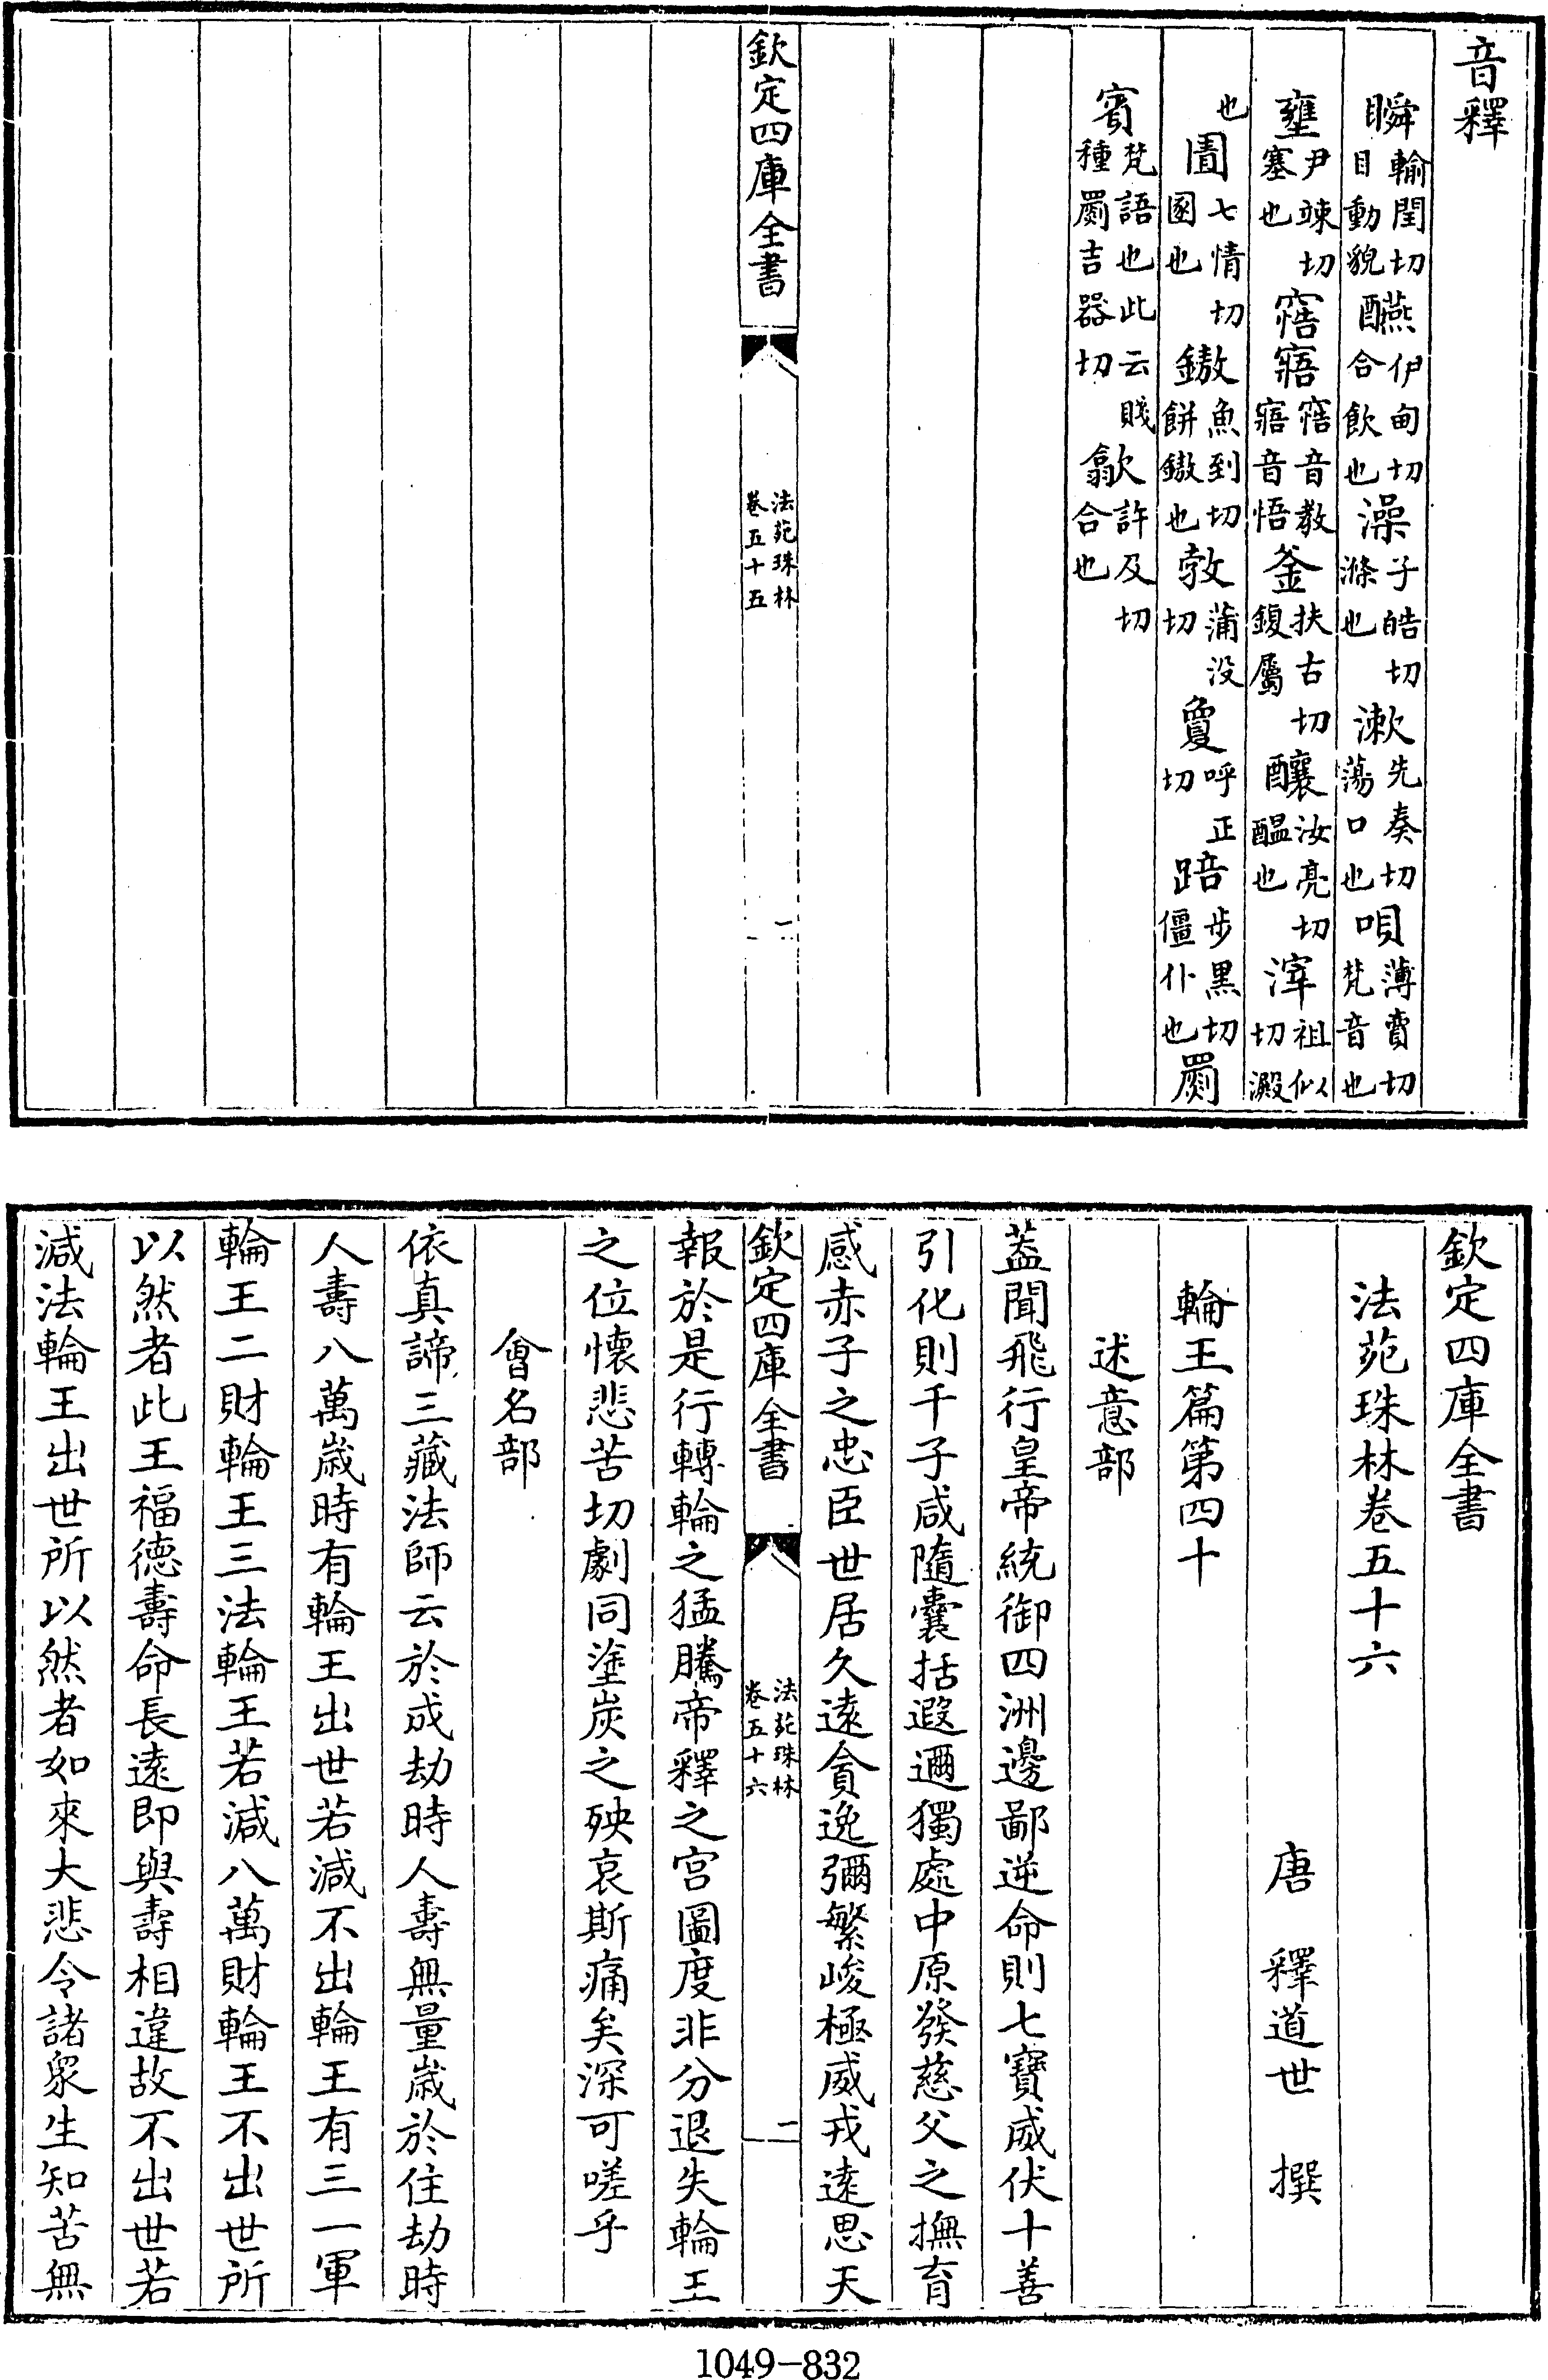 音釋
瞬輸閏切目動貌醼伊甸切合飲也澡子皓切滌也漱先奏切蕩口也唄薄賣切梵音也
壅尹竦切塞也窖寤窖音教寤音悟釜扶古切鍑屬釀汝亮切醖也滓祖似切澱
也圊七情切圂也鏊魚到切餅鏊也㪍蒲没切敻呼正切踣步黒切僵仆也罽
賓梵語也此云賤種罽吉器切歙許及切合也
欽定四庫全書
法苑珠林
卷五十五
一
欽定四庫全書
法苑珠林卷五十六
唐 釋道世 撰
輪王篇第四十
述意部
葢聞飛行皇帝統御四洲邊鄙逆命則七寳威伏十善
引化則千子咸隨囊括遐邇獨處中原發慈父之撫育
感赤子之忠臣世居久逺貪逸彌繁峻極威戎逺思天
欽定四庫全書
法苑珠林
卷五十六
二
報於是行轉輪之猛騰帝釋之宫圖度非分退失輪王
之位懐悲苦切劇同塗炭之殃哀斯痛矣深可嗟乎
㑹名部
依真諦三藏法師云於成劫時人夀無量嵗於住劫時
人夀八萬嵗時有輪王出世若減不出輪王有三一軍
輪王二財輪王三法輪王若減八萬財輪王不出世所
以然者此王福徳夀命長逺即與夀相違故不出世若
減法輪王出世所以然者如來大悲令諸衆生知苦無
1049-832